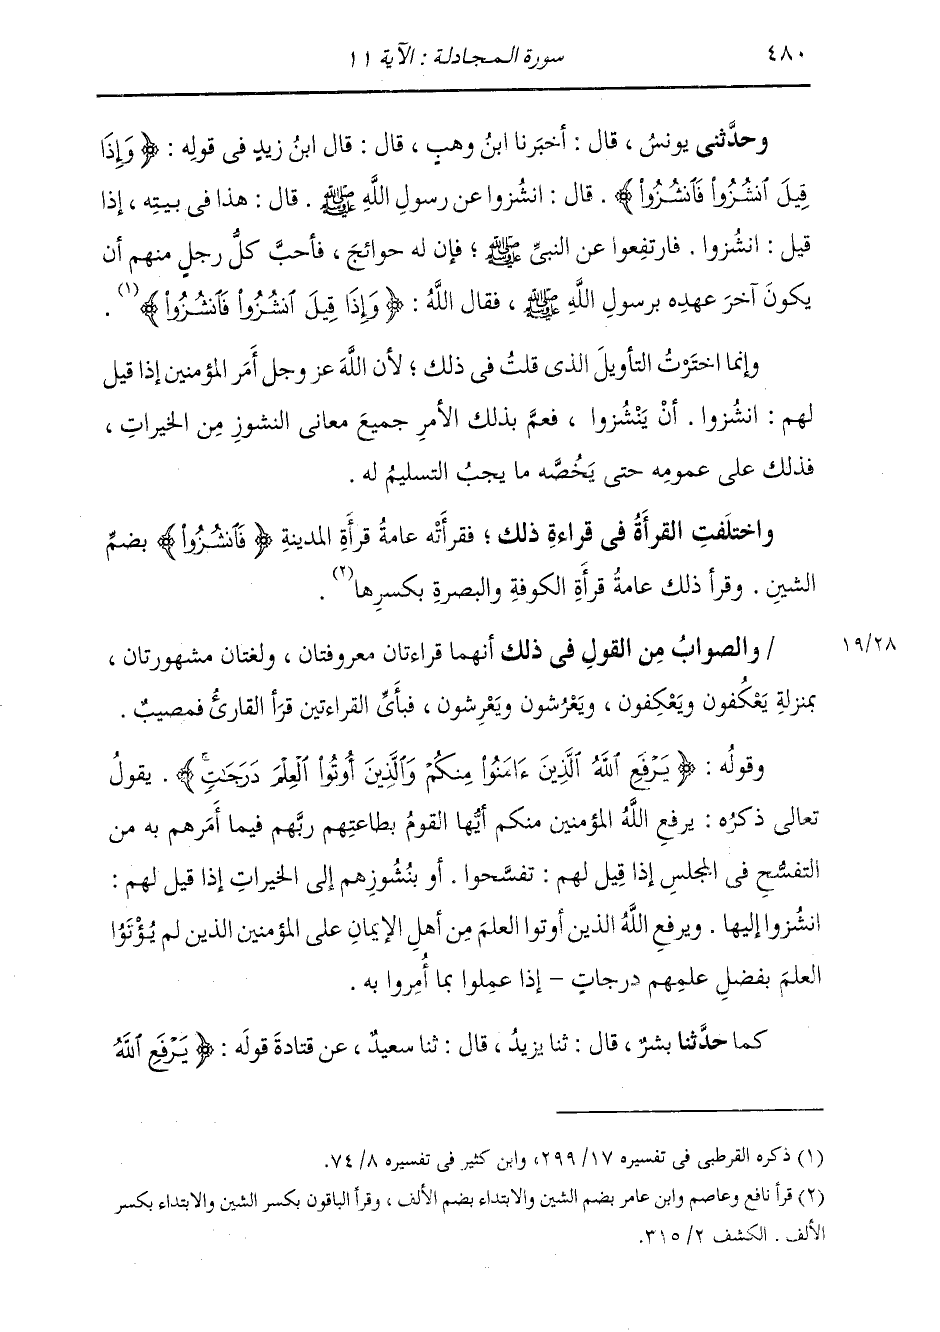 ٤٨٠ سورة المجادلة : الآية ١١
وحدَّثنى يونسُ ، قال : أخبَرنا ابنُ وهبٍ ، قال : قال ابنُ زيدٍ فى قولِه : ﴿ وَإِذَا
قِيلَ ٱنشُزُوا۟ فَٱنشُزُوا۟ ﴾ . قال : انشُزوا عن رسولِ اللَّهِ ﷺ . قال : هذا فى بيتِه ، إذا
قيل : انشُزوا . فارتفِعوا عن النبىِّ ﷺ ؛ فإن له حوائجَ ، فأحبَّ كلُّ رجلٍ منهم أن
يكونَ آخرَ عهدِه برسولِ اللَّهِ ﷺ ، فقال اللَّهُ : ﴿ وَإِذَا قِيلَ ٱنشُزُوا۟ فَٱنشُزُوا۟ ﴾ (١) .
وإنما اختَرْتُ التأويلَ الذى قلتُ فى ذلك ؛ لأن اللَّهَ عز وجل أمَر المؤمنين إذا قيل
لهم : انشُزوا . أنْ يَنْشُزوا ، فعمَّ بذلك الأمرِ جميعَ معانى النشوزِ مِن الخيراتِ ،
فذلك على عمومِه حتى يَخُصَّه ما يجبُ التسليمُ له .
واختلَفتِ القرأَةُ فى قراءةِ ذلك ؛ فقرأَتْه عامةُ قرأَةِ المدينةِ ﴿ فَٱنشُزُوا۟ ﴾ بضمِّ
الشينِ . وقرأ ذلك عامةُ قرأَةِ الكوفةِ والبصرةِ بكسرِها (٢) .
١٩/٢٨ / والصوابُ مِن القولِ فى ذلك أنهما قراءتان معروفتان ، ولغتان مشهورتان ،
بمنزلةِ يَعْكُفون ويَعْكِفون ، ويَعْرُشون ويَعْرِشون ، فبأىِّ القراءتين قرَأ القارئُ فمصيبٌ .
وقولُه : ﴿ يَرْفَعِ ٱللَّهُ ٱلَّذِينَ ءَامَنُوا۟ مِنكُمْ وَٱلَّذِينَ أُوتُوا۟ ٱلْعِلْمَ دَرَجَـٰتٍۚ ﴾ . يقولُ
تعالى ذكرُه : يرفعِ اللَّهُ المؤمنين منكم أيُّها القومُ بطاعتِهم ربَّهم فيما أمَرهم به من
التفسُّحِ فى المجلسِ إذا قِيل لهم : تفسَّحوا . أو بنُشُوزِهم إلى الخيراتِ إذا قيل لهم :
انشُزوا إليها . ويرفعِ اللَّهُ الذين أوتوا العلمَ مِن أهلِ الإيمانِ على المؤمنين الذين لم يُؤْتَوُا
العلمَ بفضلِ علمِهم درجاتٍ – إذا عمِلوا بما أُمِروا به .
كما حدَّثنا بشرٌ ، قال : ثنا يزيدُ ، قال : ثنا سعيدٌ ، عن قتادةَ قولَه : ﴿ يَرْفَعِ ٱللَّهُ
(١) ذكره القرطبى فى تفسيره ١٧/ ٢٩٩، وابن كثير فى تفسيره ٨/ ٧٤.
(٢) قرأ نافع وعاصم وابن عامر بضم الشين والابتداء بضم الألف ، وقرأ الباقون بكسر الشين والابتداء بكسر
الألف . الكشف ٢/ ٣١٥.